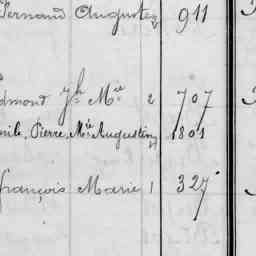 Fernand Auguste 911
Edmond Jh Mie 2 707
Emile, Pierre, Mie Augustin 1801
François Marie 1 327